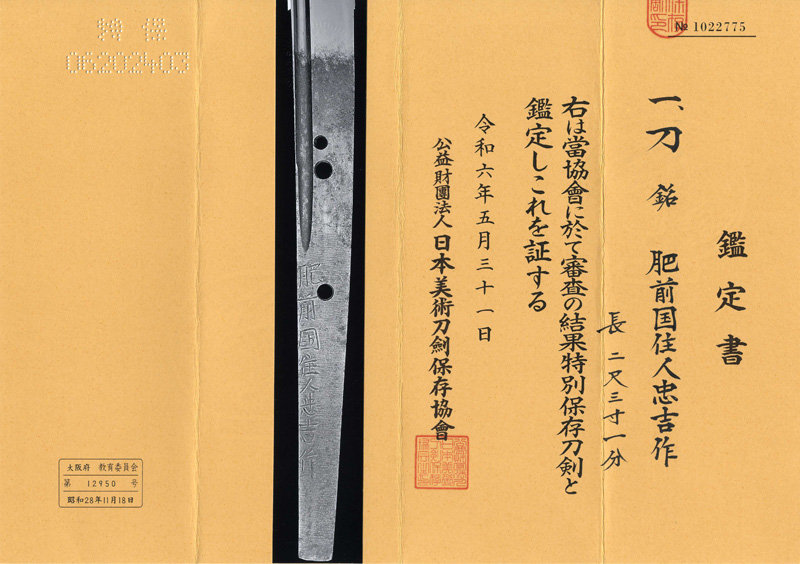 № 1022775
鑑定書
一、刀 銘 肥前国住人忠吉作
長二尺三寸一分
右は當協會に於て審査の結果特別保存刀剣と
鑑定しこれを証する
令和六年五月三十一日
公益財團法人日本美術刀劍保存協會
肥前国住人忠吉作
特保
06202403
大阪府 教育委員会
第 12950 号
昭和28年11月18日